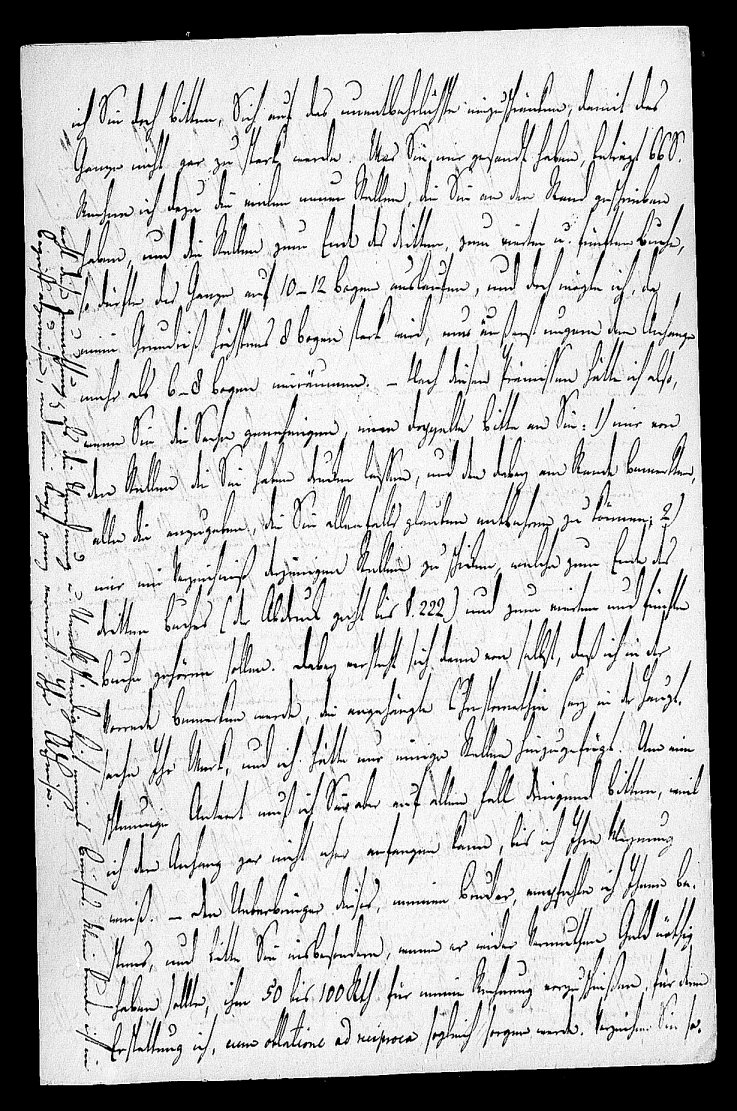 ich Sie doch bitten, Sich auf das unentbehrlichste einzuschränken, damit das
Ganze nicht gar zu stark werde. Was Sie mir gesandt haben, beträgt 66 S.
Rechne ich dazu die vielen neuen Stellen, die Sie an den Rand geschrieben
haben, und die Stellen zum Ende des dritten, zum vierten u. fünften Buche,
so dürfte das Ganze auf 10–12 Bogen auslaufen, und doch möchte ich, da
mein Grundriß höchstens 8 Bogen stark wird, nur äußerst ungern dem Anhange
mehr als 6–8 Bogen einräumen. – Nach diesen Prämissen hätte ich also,
wenn Sie die Sache genehmigen, eine doppelte Bitte an Sie: 1) mir von
den Stellen die Sie haben drucken lassen, und den dabey am Rande bemerkten,
alle die anzugeben, die Sie allenfalls glauben entbehren zu können; 2)
mir ein Verzeichniß derjenigen Stellen zu schicken, welche zum Ende des
dritten Buches (der Abdruck geht bis S. 222) und zum vierten und fünften
Buche gehören sollen. Dabey versteht sich denn von selbst, daß ich in der
Vorrede bemerken werde, die angehängte Chrestomathie sey in der Haupt-
sache Ihr Werk, und ich hätte nur einige Stellen hinzugefügt. Um eine
schleunige Antwort muß ich Sie aber auf allen Fall dringend bitten, weil
ich den Anhang gar nicht eher anfangen kann, bis ich Ihre Meynung
weiß. – Den Ueberbringer dieses, meinen Bruder, empfehle ich Ihnen be-
stens, und bitte Sie insbesondere, wenn er wider Vermuthen Geld nöthig
haben sollte, ihm 50 bis 100 Rth. für meine Rechnung vorzuschießen, für deren
Erstattung ich, cum oblatione ad reciproca sogleich sorgen werde. Verzeihen Sie ja